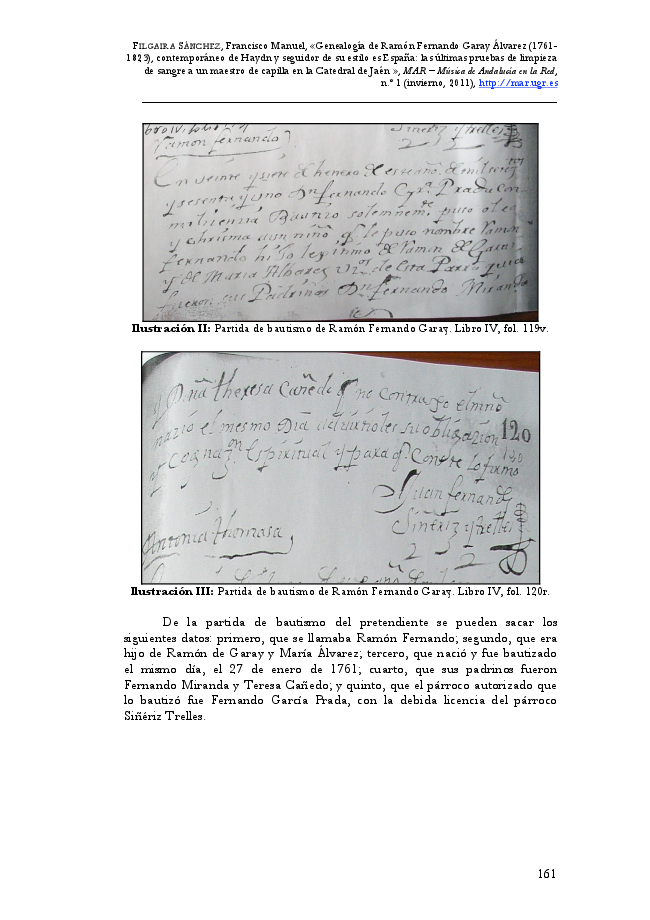 FILGAIRA SÁNCHEZ, Francisco Manuel, «Genealogía de Ramón Fernando Garay Álvarez (1761-
1823), contemporáneo de Haydn y seguidor de su estilo es España: las últimas pruebas de limpieza
de sangre a un maestro de capilla en la Catedral de Jaén », MAR – Música de Andalucía en la Red,
n.º 1 (invierno, 2011), http://mar.ugr.es
Ramon fernando
En veinte y siete de henero de este año de mil
y sesenta y uno Dn fernando Prada con
mi licenzia Bautizo solemnemte puso oleo
y chrisma a un niño q. le puso nombre Ramon
fernando hijo lexitimo de Ramon de Garai
y de Maria Albarez de esta Parrõquia
fueron sus Padrinos Dn fernando Miranda
Ilustración II: Partida de bautismo de Ramón Fernando Garay. Libro IV, fol. 119v.
y Dña theresa Cañedo q no contraxo el niño
nazió el mesmo Dia su obligazion 120
Espiritual y para q. Conste lo firmo
Juan fernando
Siñeriz y trelles
Antonia thomasa
Ilustración III: Partida de bautismo de Ramón Fernando Garay. Libro IV, fol. 120r.
De la partida de bautismo del pretendiente se pueden sacar los
siguientes datos: primero, que se llamaba Ramón Fernando; segundo, que era
hijo de Ramón de Garay y María Álvarez; tercero, que nació y fue bautizado
el mismo día, el 27 de enero de 1761; cuarto, que sus padrinos fueron
Fernando Miranda y Teresa Cañedo; y quinto, que el párroco autorizado que
lo bautizó fue Fernando García Prada, con la debida licencia del párroco
Siñériz Trelles.
161